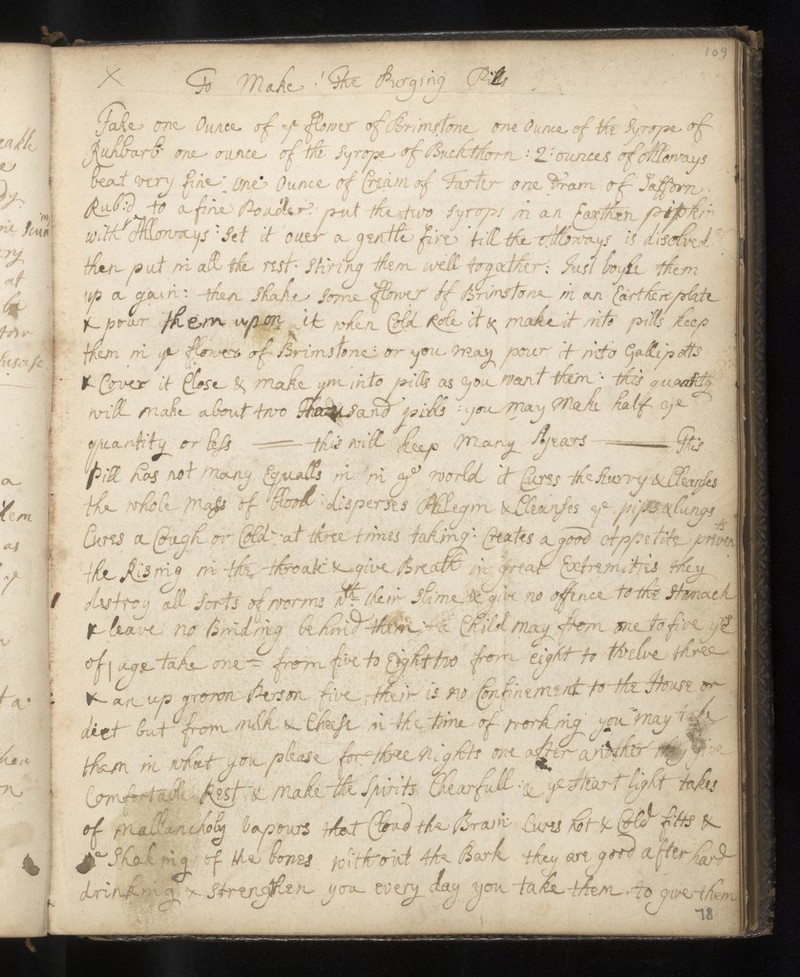 109
X To Make : The Purging Pills
Take one Ounce of ye flower of Brimstone one Ounce of the Syrope of
Ruhbarb one ounce of the Syrope of Buckthorn : 2 : ounces of Alloways
beat very fine : one Ounce of Cream of Tarter one Dram of Safforn
Rub:d to a fine Pouder : put the two Syrops in an Earthen pipkin
with Alloways : Set it ouer a gentle fire till the Alloways is disolved
then put in all the rest : Stiring them well togather : Just boyle them
up a gain : then Shake some flower of Brimstone in an Earthen plate
& pour them upon it when Cold Role it & make it into pills keep
them in ye flower of Brimstone : or you may pour it into Gallipotts
& Cover it Close & make ym into pills as you want them : this quantity
will make about two Thousand pills : you may Make half ye
quantity or less — this will keep Many Years — This
Pill has not many Equalls in in ye world it Cures the Scurvy & Cleanses
the whole Mass of blood : disperses Phlegm & Cleanses ye pips & lungs
Cures a Cough or Cold : at three times taking : Creates a good Appetite prevents
the Rising in the throate & give Breath in great Extremities they
destroy all Sorts of worms wth their Slime & give no offence to the Stomach
& leave no Binding behind them – a Child may from one to five yrs
of age take one = from five to Eight two from eight to twelve three
& an up grown Person five , their is no Confinement to the House or
diet but from milk & Cheese in the time of working you may take
them in what you please for three nights one after another they give
Comfortable Rest & make the Spirits Chearfull : & ye Heart light takes
of mallancholy Vapours that Cloud the Brain Cures hot & Cold fitts &
ye Shaking of the bones without the Bark they are good after hard
drinking & Strengthen you every day you take them . to give them
78